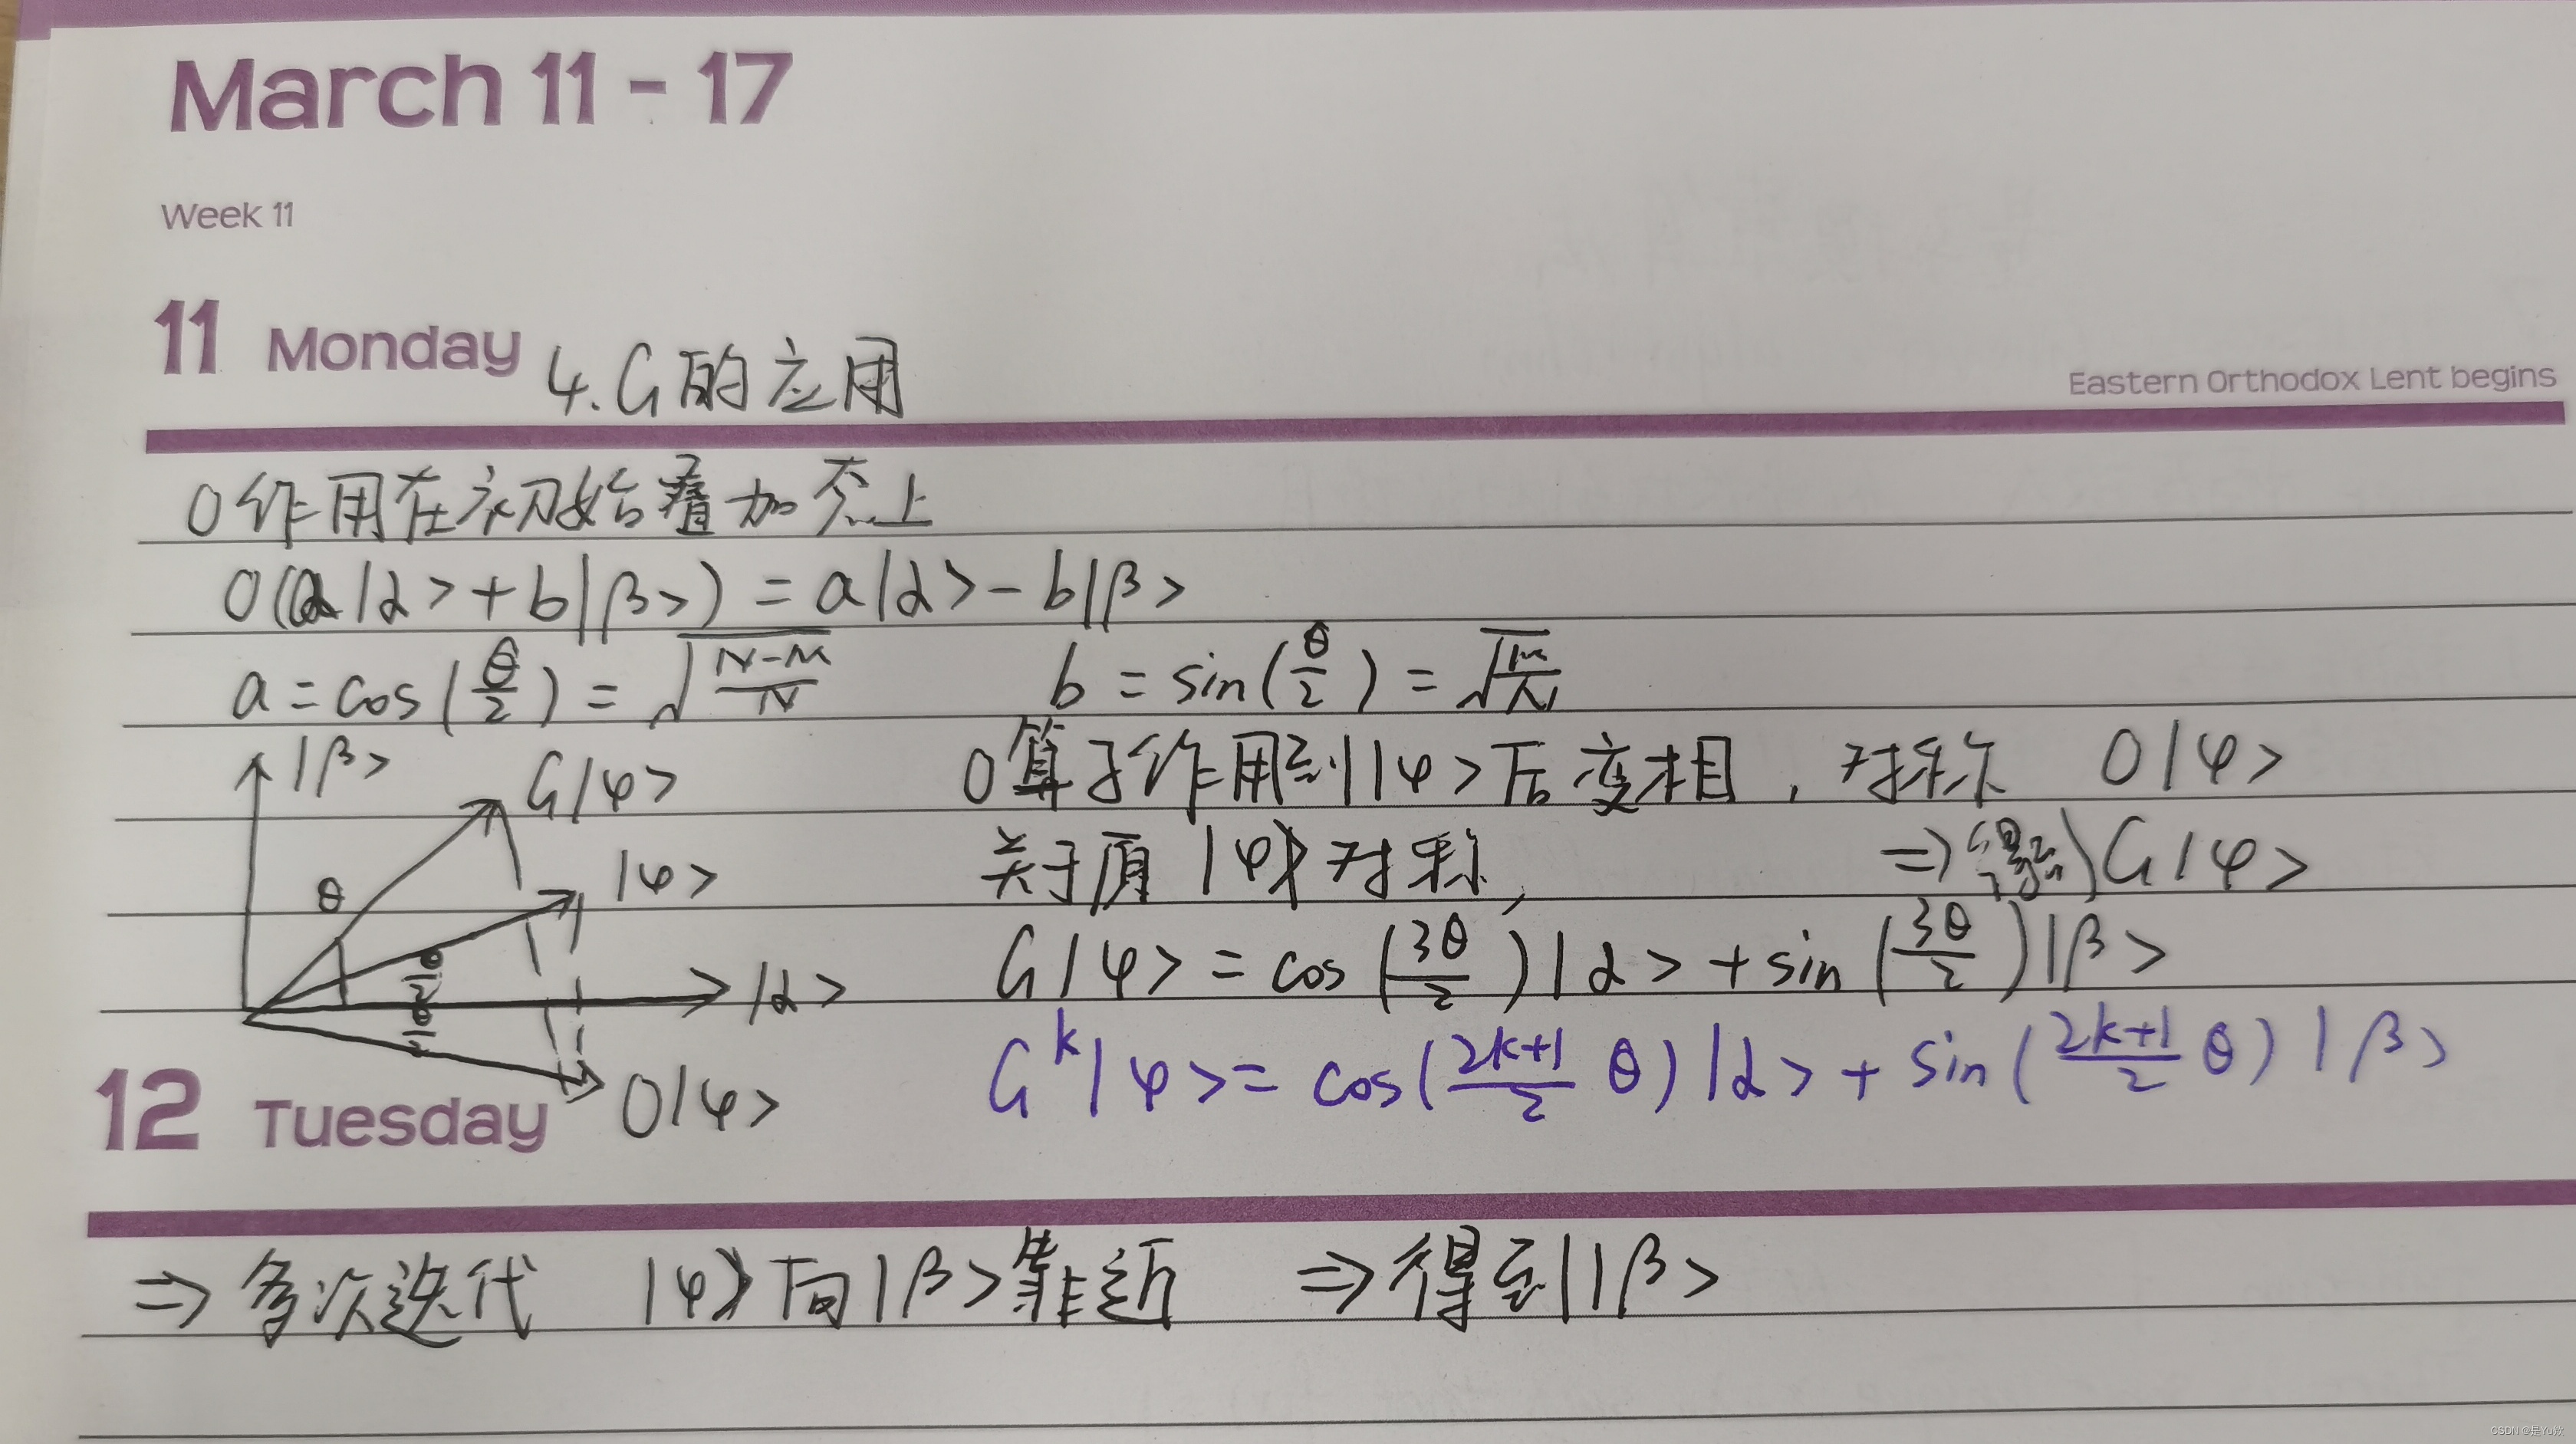 March 11 - 17
Week 11
11 Monday 4. G的应用
Eastern Orthodox Lent begins
O作用在初始叠加态上
O(a|α>+b|β>) = a|α>-b|β>
a = cos(θ/2) = √((N-M)/N)    b = sin(θ/2) = √(M/N)
|β>
G|φ>
|φ>
θ
θ/2
θ/2
|α>
O|φ>
O算子作用到|φ>后变相, 对称 O|φ>
关于原|φ>对称, => 得到 G|φ>
G|φ> = cos(3θ/2)|α> + sin(3θ/2)|β>
G^k|φ> = cos((2k+1)/2 θ)|α> + sin((2k+1)/2 θ)|β>
12 Tuesday
=> 多次迭代 |φ>向|β>靠近 => 得到|β>
CSDN @是Yu欸